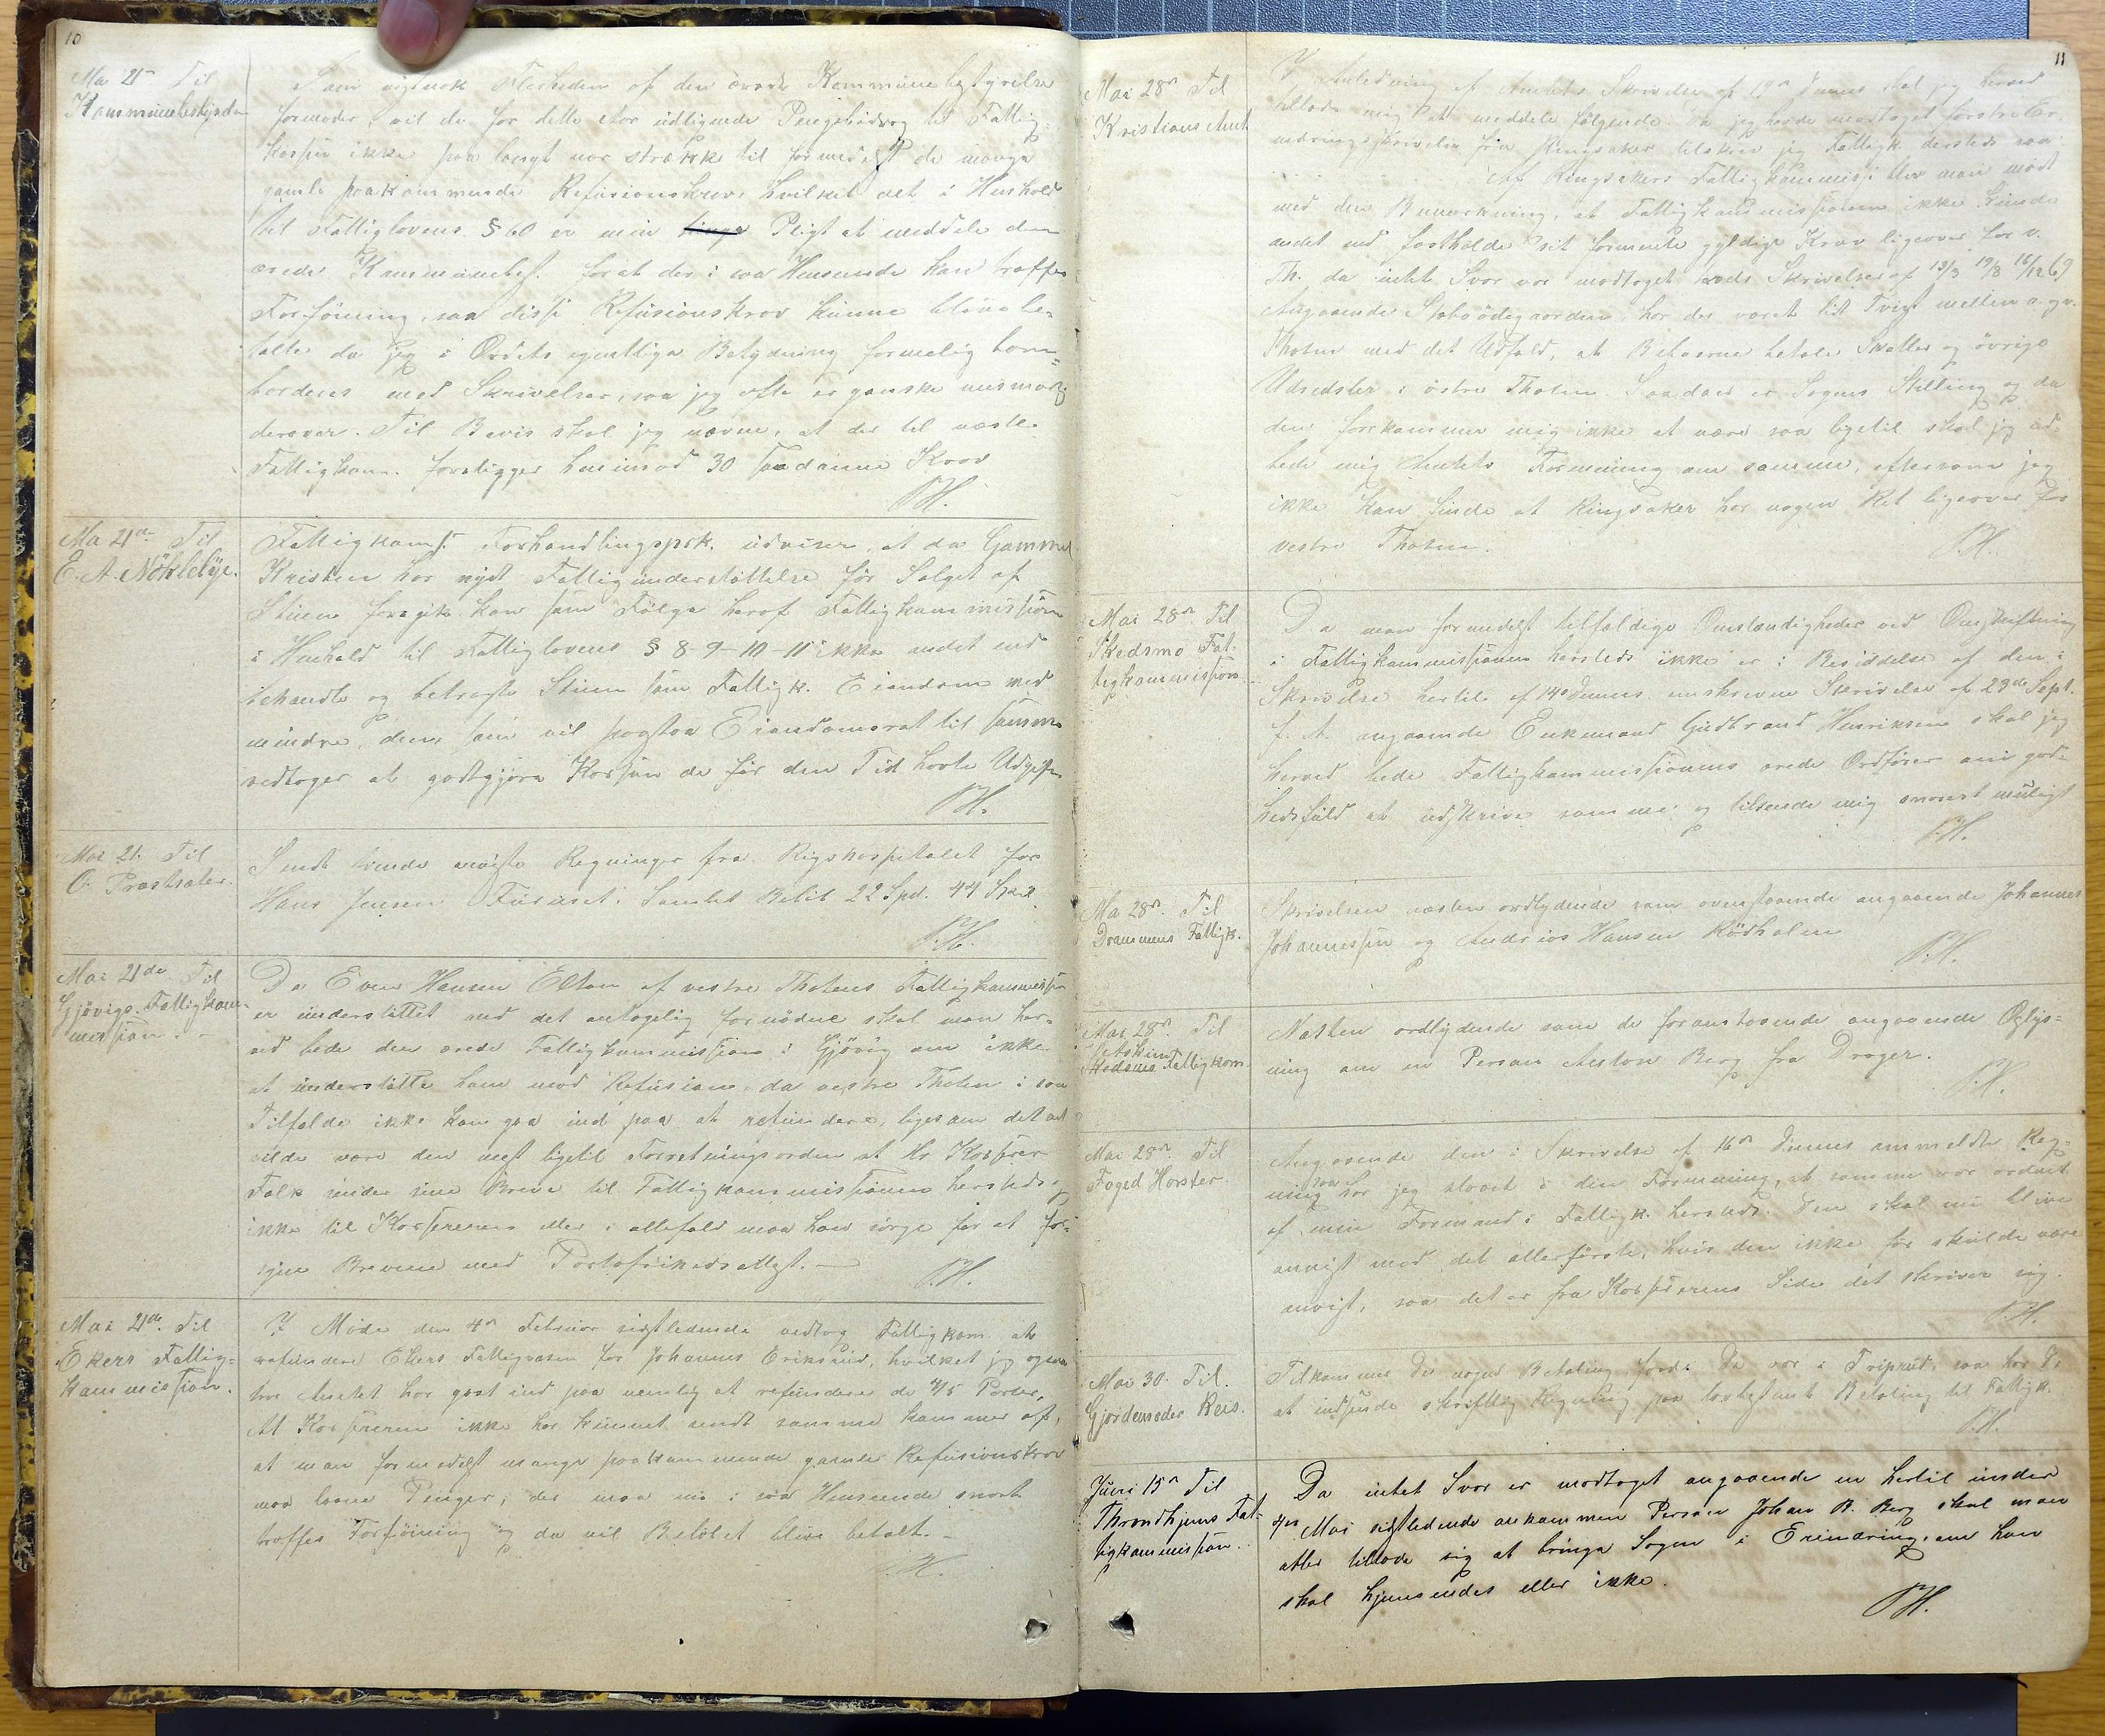 10
Mai 21de Til
Kommunebestyrelsen
Som vistnok Fleerheden af den ærede Kommunebestyrelse
formoder, vil de for dette Aar udlignede Pengebidrag til Fattig-
kassen ikke paa langt nær strække til formedelst de mange
gamle paakommende Refusionskrav, hvilket det i Henhold
til Fattiglovens § 60 er min Pligt at meddele den
ærede Kommunebest. forat der i saa Henseende kan træffes
Forføining, saa disse Refusionskrav kunne blive be-
talte da jeg i Ordets egentlige Betydning formelig bom-
barderes med Skrivelser, saa jeg ofte er ganske mismodig
derover. Til Bevis skal jeg nævne, at der til næste
Fattigkom. foreligger henimod 30 saadanne Krav
P.H.
Mai 21de Til
E. A. Nøkleby.
Fattigkoms. Forhandlingsprk. udviser, at da Gammel
Kristen har nydt Fattigunderstøttelse før Salget af
Stuen foregik kan som Følge heraf Fattigkommissionen
i Henhold til Fattiglovens § 8-9-10-11 ikke andet end
behandle og betragte Stuen som Fattigk. Eiendom med
mindre, den, som vil paastaa Eiendomsret til samme
vedtager at godtgjøre Kassen de før den Tid havte Udgifter
P.H.
Mai 21. Til
O. Præstsæter.
Sendt tvende anviste Regninger fra Rigshospitalet for
Hans Jensen Furuset: Samlet Beløb 22 Spd. 44 Skil.
P.H.
Mai 21de Til
Gjøvigs Fattigkom-
mission.
Da Even Hansen Elton af vestre Thotens Fattigkommission
er understøttet med det antagelig fornødne skal man her-
ved bede den ærede Fattigkommission i Gjøvig om ikke
at understøtte ham mod Refusion, da vestre Thoten i saa
Tilfælde ikke kan gaa ind paa at refundere, ligesom det
vilde være den mest ligetil Forretningsorden at Hr Kasserer
Falk sender sine Breve til Fattigkommissionen hersteds,
ikke til Kassereren eller i allefald maa han sørge for at for-
syne Brevene med Portofrihedsattest. —
P.H.
Mai 21de Til
Ekers Fattig-
kommission.
I Møde den 4de Februar sidstledende vedtog Fattigkom. at
refundere Ekers Fattigvæsen for Johannes Eriksrud, hvilket jeg ogsaa
tror Amtet har gaat ind paa nemlig at refundere de 4/5 Parter,
At Kassereren ikke har kunnet sendt samme kommer af,
at man formedelst mange paakommende gamle Refusionskrav
maa laane Penger; der maa nu i saa Henseende snart
træffes Forføining og da vil Beløbet blive betalt. —
P.H.
11
Mai 28de Til
Kristians Amt
I Anledning af Amtets Skrivelse af 19de Dennes skal jeg herved
tillade mig at meddele følgende. Da jeg havde modtaget
Skrivelse fra Ringsaker tilskrev jeg Fattigk. dersteds
Af Ringsakers Fattigkommiss. blev man mødt
med den Bemærkning, at Fattigkommissionen ikke kunde
andet end fastholde sit formente gyldige Krav ligeover for v.
Th. da intet Svar var modtaget paa deres Skrivelser af 13/3 19/8 16/12 69
Angaaende Stabsødegaarden, har der været lidt Tvist mellem ø. og v.
Thoten med det Udfald, at Beboerne betale Skatter og øvrige
Udredsler i østre Thoten. Saadan er Sagens Stilling og da
den forekommer mig ikke at være saa ligetil skal jeg ud-
bede mig Amtets Formening om samme, eftersom jeg
ikke kan finde at Ringsaker har nogen Ret ligeover for
vestre Thoten.
P.H.
Mai 28de Til
Skedsmo Fat-
tigkommission.
Da man formedelst tilfældige Omstændigheder ved Omskiftning
i Fattigkommissionen hersteds ikke er i Besiddelse af den i
Skrivelse hertil af 14de Dennes omskrevne Skrivelse af 23de Sept.
f. A. angaaende Enkemand Gudbrand Henriksen skal jeg
herved bede Fattigkommissionens ærede Ordfører om god-
hedsfuld at udskrive samme og tilsende mig snarest muligt
P.H.
Mai 28de Til
Drammens Fattigk.
Skrivelsen næsten ordlydende som ovenstaaende angaaende Johannes
Johannessen og Andrias Hansen Rødholen
P.H.
Mai 28de Til
Askims
Skedsmo Fattigkom.
Næsten ordlydende som de foranstaaende angaaende Oplys-
ning om en Person Anton Berg fra Drager.
P.H.
Mai 28de Til
Foged Horster.
Angaaende den i Skrivelse af 16de Dennes anmeldte Reg-
ning saa har jeg staaet i den Formening, at samme var ordnet
af min Formand i Fattigk. hersteds. Den skal nu blive
anvist med det allerførste, hvis den ikke før skulde være
anvist, saa det er fra Kassererens Side det skriver sig.
P.H.
Mai 30. Til.
Gjordemoder Reis.
Tilkommer De nogen Betaling fordi De var i Friprud, saa har De
at indsende skriftlig Regning paa lovbestemt Betaling til Fattigk.
P.H.
Juni 15de Til
Throndhjems Fat-
tigkommission.
Da intet Svar er modtaget angaaende en hertil under
4de Mai sidstledende ankommen Person Johan B. Berg skal man
atter tillade sig at bringe Sagen i Erindring, om han
skal hjemsendes eller ikke.
P.H.